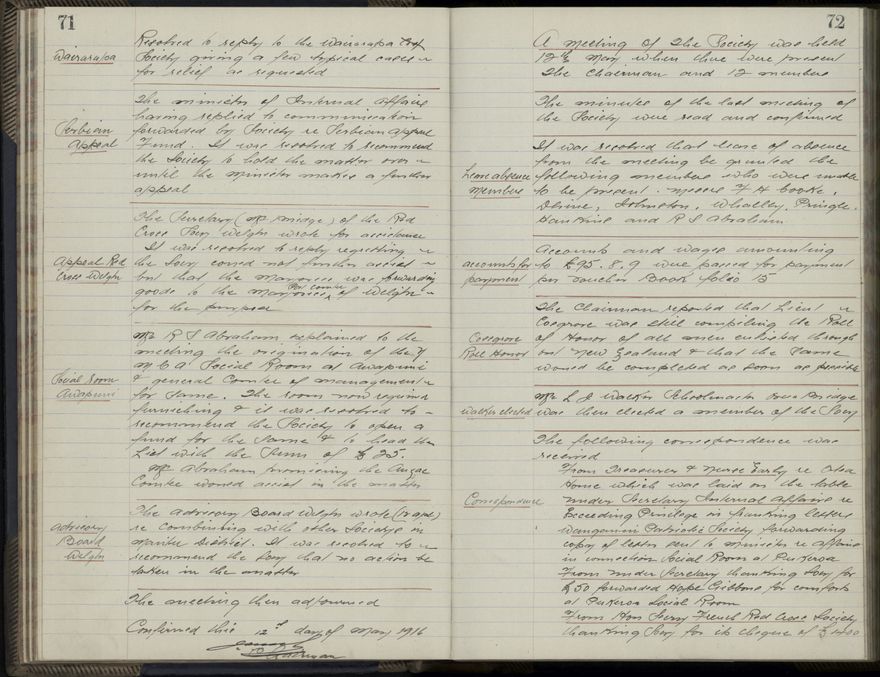 71
Wairarapa
Resolved to reply to the Wairarapa
Society giving a few typical cases
for relief as requested
Serbian
Appeal
The Minister of Internal Affairs
having replied to communication
forwarded by Society re Serbian Appeal
Fund. It was resolved to recommend
the Society to hold the matter over
until the Minister makes a further
appeal
Appeal Red
Cross Welgtn
The Secretary (Mr Midge) of the Red
Cross Socy Welgtn wrote for assistance
It was resolved to reply regretting
the Socy could not further assist
but that the was forwarding
goods to the of Welgtn
for the purpose
Social Room
Awapuni
Mr R S Abraham explained to the
meeting the origination of the Y
M C A Social Room at Awapuni
& general Comtee of management
for same. The room now required
furnishing & it was resolved to
recommend the Society to open a
fund for the same & to head the
List with the sum of £25.
Mr Abraham promising the
Comtee would assist in the matter
Advisory
Board
Welgtn
The Advisory Board Welgtn wrote
re combining with other Societys in
District. It was resolved to
recommend the Socy that no action be
taken in the matter
The meeting then adjourned
Confirmed this 12th day of May 1916
Chairman
72
A meeting of the Society was held
12th May when there were present
The Chairman and 12 members
The minutes of the last meeting of
the Society were read and confirmed
Leave absence
Members
It was resolved that leave of absence
from the meeting be granted the
following members who were unable
to be present. Messrs F H Cooke,
Devine, Johnston, Whalley, Pringle,
Hankins and R S Abraham
Accounts for
payment
Accounts and wages amounting
to £95.8.9 were passed for payment
per Voucher Book folio 15
Cosgrove
Roll Honor
The Chairman reported that Lieut
Cosgrove was still compiling the Roll
of Honor of all men enlisted through
out New Zealand & that the same
would be completed as soon as possible
Walker elected
Mr L J Walker Schoolmaster Bridge
was then elected a member of the Socy
Correspondence
The following correspondence was
received
From Treasurer & Nurse Early re Otea
Home which was laid on the table
Under Secretary Internal Affairs re
Exceeding Privilege in franking letters
Wanganui Patriotic Society forwarding
copy of letter sent to Minister re Affairs
in connection Social Room at Pukeroa
From Under Secretary thanking Socy for
£50 forwarded Hope Gibbons for comforts
at Pukeroa Social Room
From Hon Secy French Red Cross Society
thanking Socy for its cheque of £1400